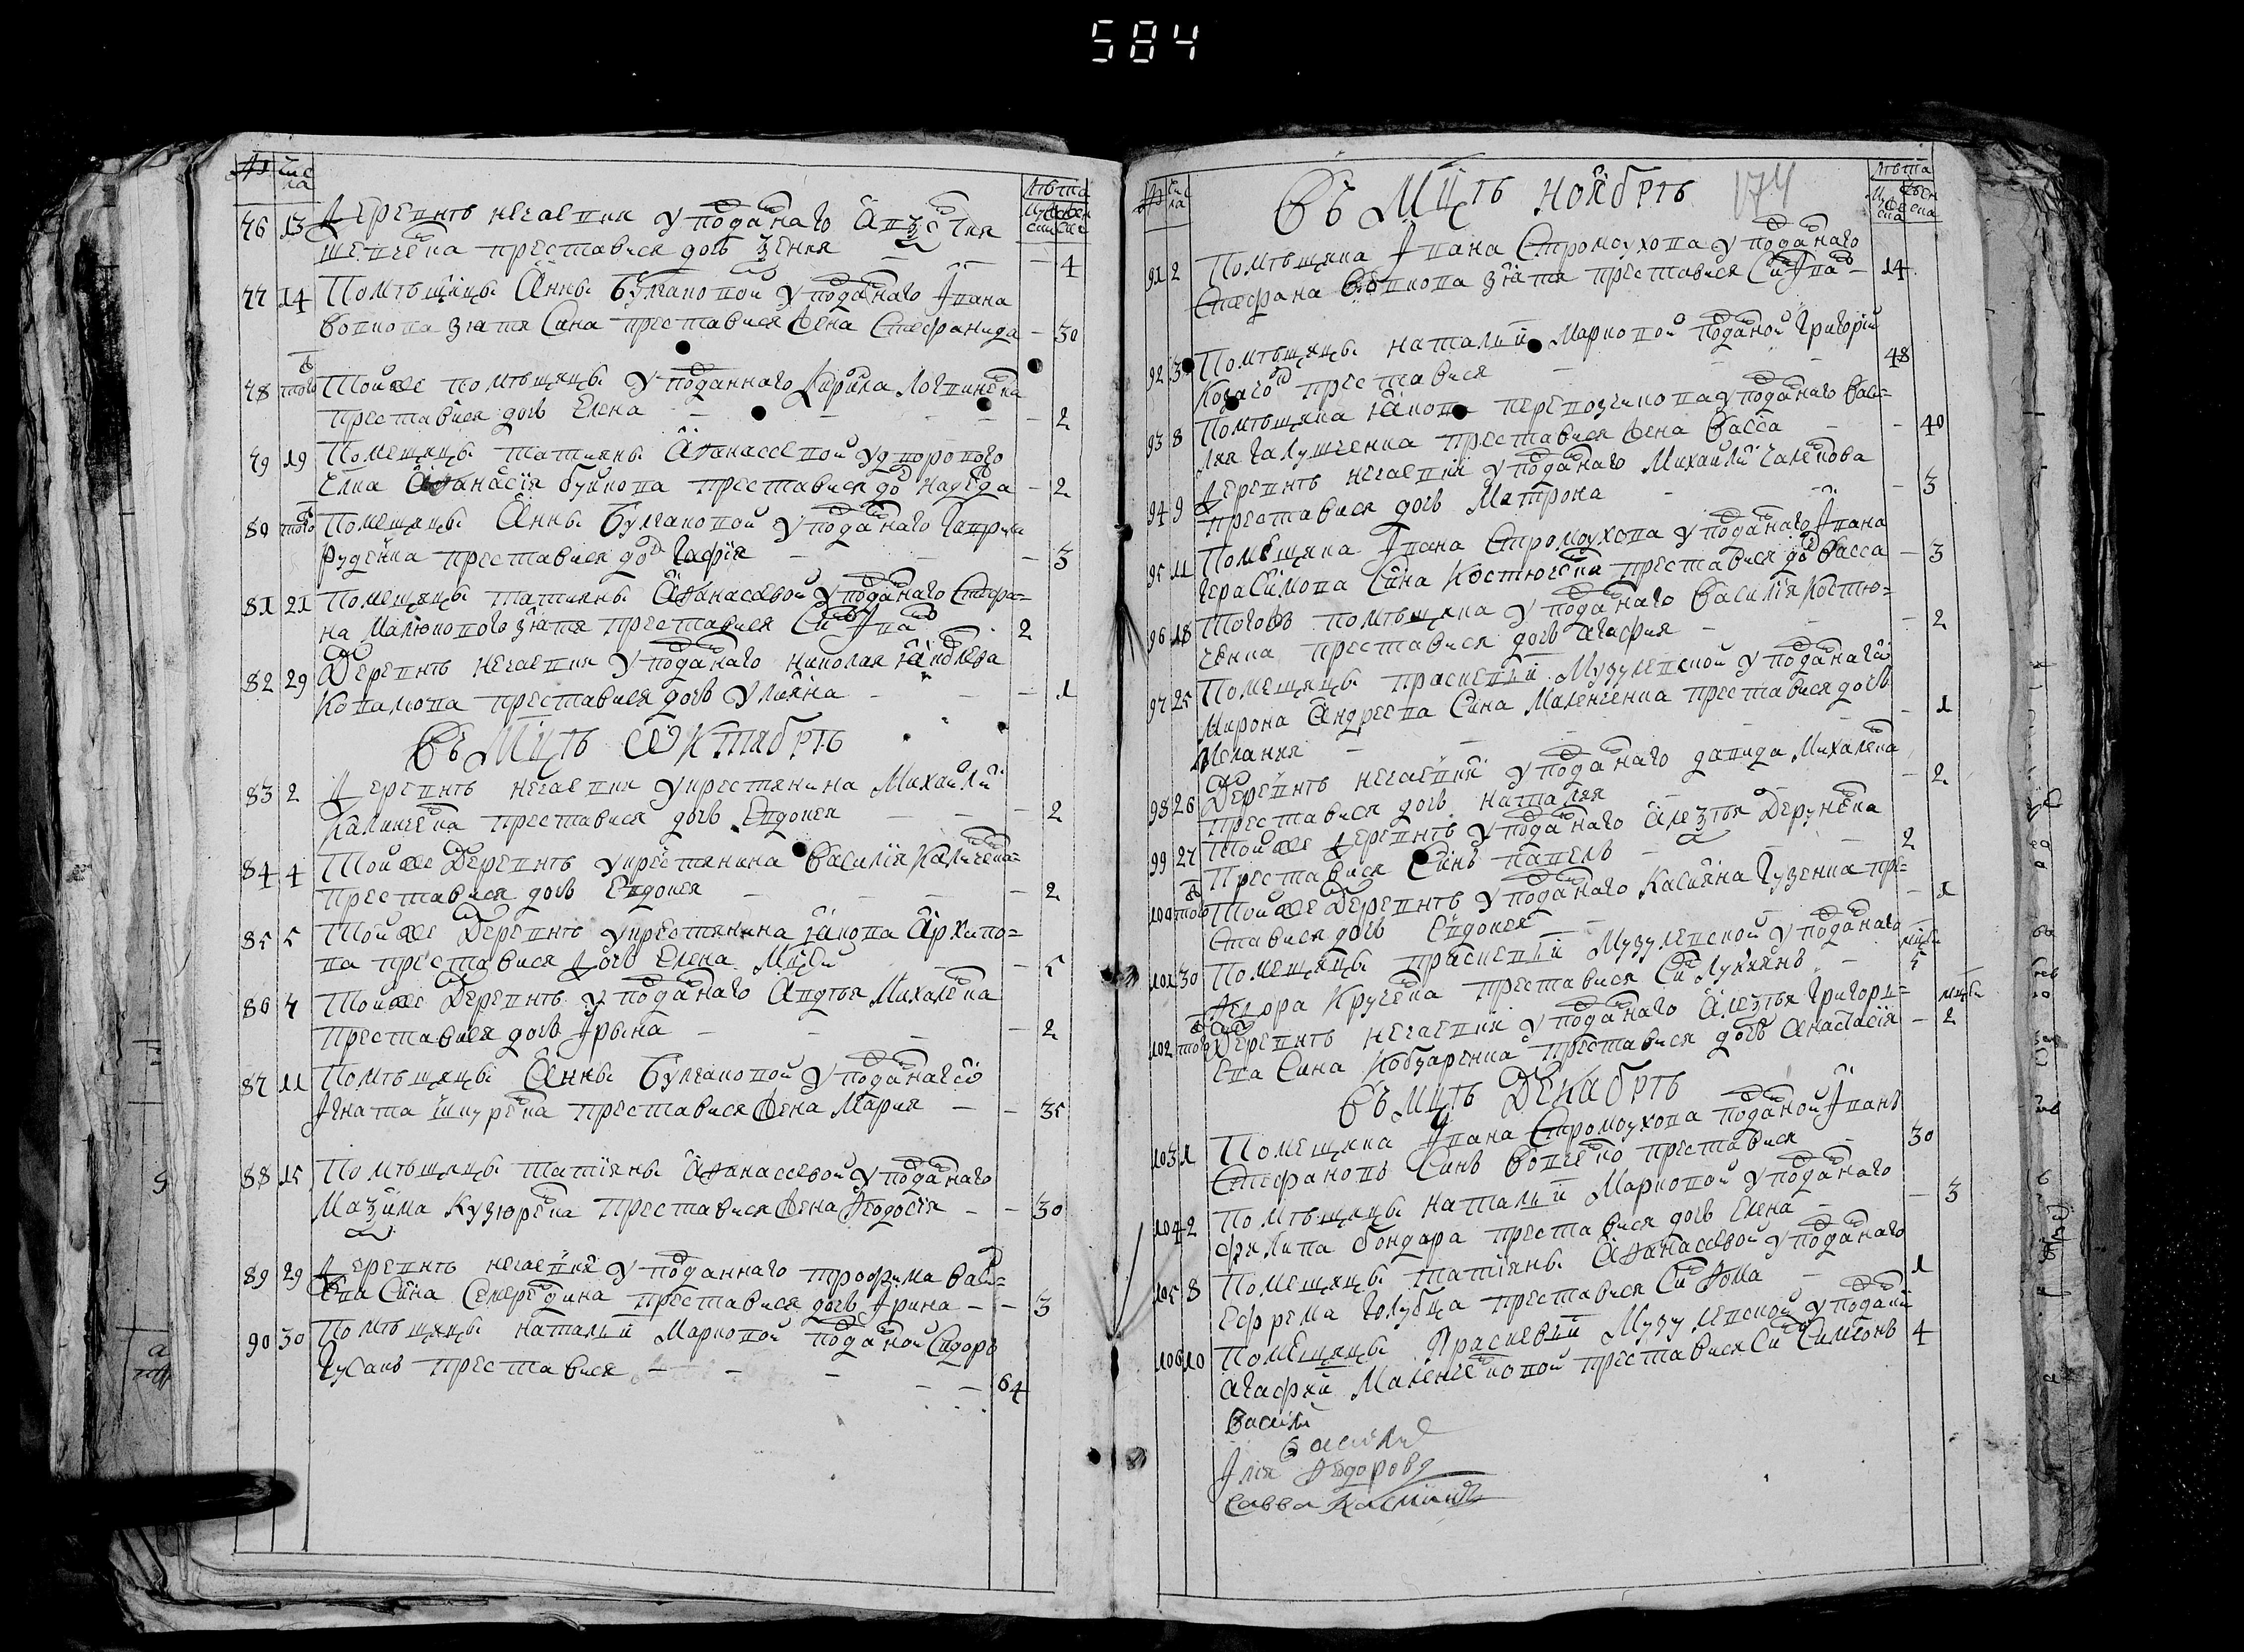 584
№ Чис
ла
Лѣта
Мужес Женс
ска ска
76 13 Деревнѣ нечаевки у подданаго Авѯентия
шевченка преставися дочь Ѯения — — — 4
77 14 Помѣщицы Анны Булгаковой у подданаго Iвана
Вовкова зятя Сина преставися жена Стефанида — 30
78 того Той же помѣщицы у подданнаго Кирила Логвиненка
преставися дочь Елена — — — — 2
79 19 Помещицы татияны Афанассевой у дворового
Афанасiя буйкова преставися дочь надежда — 2
80 того Помещицы Анны Булгаковой у подданаго Гаврила
Руденка преставися дочь Гафiя — — — 3
81 21 Помещицы татияны Афанасевой у подданаго Стефа=
на Малюкового зятя преставися Синъ Iванъ 2
82 29 Деревнѣ нечаевки у подданаго николая
Ковалюва преставися дочь Улияна — — — 1
Въ Мцѣ Октябрѣ
83 2 Деревнѣ нечаевки у крестянина Михайли
Калинченка преставися дочь Евдокея — — — 2
84 4 Той же Деревнѣ у крестянина Василiя Каличенка=
преставися дочь Евдокея — — — 2
85 5 Той же Деревнѣ у крестянина якова Архипо=
ва преставися Дочь Елена Мцей — — 5
86 7 Той же Деревнѣ у подданаго Авдѣя Михаленка
Преставися дочь Iрына — — — 2
87 11 Помѣщицы Анны Булгаковой у подданагw
Iгната шкуренка преставися жена Мария — — 35
88 15 Помѣщицы татiяны Афанассевой у подданаго
Маѯима Кузюренка преставися жена Феодосiя — — 30
89 29 Деревнѣ нечаевки у подданнаго трофима Васи=
ева Сина Семередина преставися дочь Iрина — — 3
90 30 Помѣщицы наталiи Марковой подданой Сидоръ
Чусакъ преставися — — — — — 64
Въ Мцѣ ноябрѣ
174
№ Чис
ла
Лѣта
Мужес Женс
ска ска
91 2 Помѣщика Iвана Стромоухова у подданаго
Стефана Вовкова зятя преставися Синъ Iванъ — 14
92 3 Помѣщицы наталiи Марковой подданой Григорiй
преставися — — 48
93 8 Помѣщика якова перевозчикова у подданаго Васи=
лия Галушченка преставися жена Васса — — 40
94 9 Деревнѣ нечаевки у подданаго Михайли Галенкова
преставися дочь Матрона — — — 3
95 11 Помѣщика Iвана Стромоухова у подданаго Iвана
Герасимова Сина Костюченка преставися дочь Васса — 3
96 18 Тогожъ помѣщика у подданаго Василiя Костю=
ченка преставися дочь агафия — — — 2
97 25 Помещицы праскевiи Музулевской у подданагw
Мирона Андреева Сина Маленченка преставися дочь
Мелания — — — — 1
98 26 Деревнѣ нечаевки у подданаго давида Михаленка
преставися дочь наталия — — 2
99 27 Той же Деревнѣ у подданаго Алеѯѣя Деруненка
Преставися Синъ павелъ — — — 2
100 того Той же Деревнѣ у подданаго Касияна Гузенка пре=
ставися дочь Евдокея — — — 1
101 30 Помещицы праскевiи Музулевской у подданаго мцей
Федора Крученка преставися Синъ Лукиянъ — 5
102 того Деревнѣ нечаевки у подданаго Алеѯѣя Григорi= мцей
ева Сина Кобзаренка преставися дочь Анастасiя — 2
Въ мцѣ Декабрѣ
103 1 Помещика Iвана Стромоухова подданой Iванъ
Стефановъ Синъ Вовченко преставися — 30
104 2 Помѣщицы наталiи Марковой у подданаго
филипа бондара преставися дочь Елена — — 3
105 8 Помещицы татiяны Афанассевой у подданаго
Ефрема Голубца преставися Синъ Фома — 1
106 10 Помещицы Праскевiи Музулевской у поддани
агафии Маленченковой преставися Синъ Симеонъ 4
Василiй
Василий
Iлiя Федоровъ
Савва